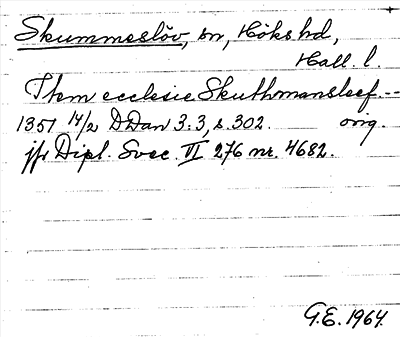 Skummeslöv, sn, Höks hd,
Hall. l.
Item ecclesie Skuthmansleef.--
1351 14/2 DDan 3:3, s. 302. orig.
jfr Dipl. Svec. VI 276 nr. 4682.
G.E. 1964.